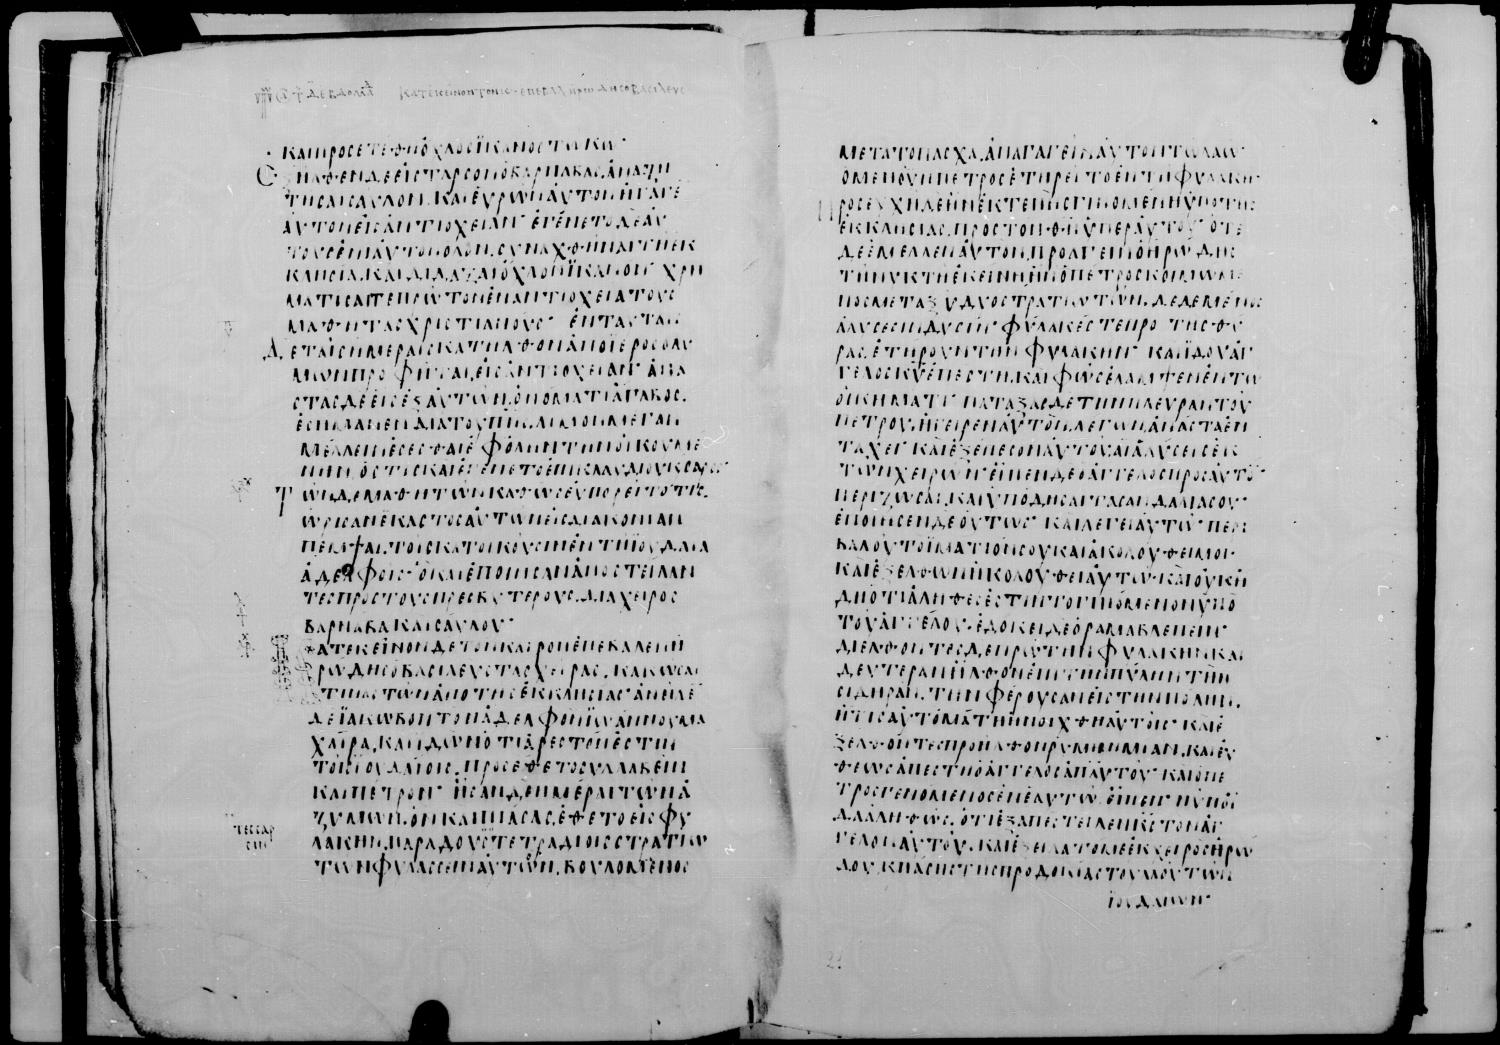 ΚΑΤΕΚΕΙΝΟΝΤΟΝΚ ΕΠΕΒΑΛ ΗΡΩΔΗΣΟΒΑΣΙΛΕΥΣ
ΚΑΙΠΡΟΣΕΤΕΘΗΟΧΛΟΣΪΚΑΝΟΣΤΩΚΩ
ΕΞΗΛΘΕΝΔΕΕΙΣΤΑΡΣΟΝΟΒΑΡΝΑΒΑΣ,ΑΝΑΖΗ
ΤΗΣΑΙΣΑΥΛΟΝ,ΚΑΙΕΥΡΩΝΑΥΤΟΝΗΓΑΓΕ
ΑΥΤΟΝΕΙΣΑΝΤΙΟΧΕΙΑΝ ΕΓΕΝΕΤΟΔΕΑΥ
ΤΟΥΣΕΝΙΑΥΤΟΝΟΛΟΝ,ΣΥΝΑΧΘΗΝΑΙΤΗΕΚ
ΚΛΗΣΙΑ,ΚΑΙΔΙΔΑΞΑΙΟΧΛΟΝΪΚΑΝΟΝ ΧΡΗ
ΜΑΤΙΣΑΙΤΕΠΡΩΤΟΝΕΝΑΝΤΙΟΧΕΙΑΤΟΥΣ
ΜΑΘΗΤΑΣΧΡΙΣΤΙΑΝΟΥΣ ΕΝΤΑΥΤΑΙΣ
ΔΕΤΑΙΣΗΜΕΡΑΙΣΚΑΤΗΛΘΟΝΑΠΟΪΕΡΟΣΟΛΥ
ΜΩΝΠΡΟΦΗΤΑΙ,ΕΙΣΑΝΤΙΟΧΕΙΑΝ ΑΝΑ
ΣΤΑΣΔΕΕΙΣΕΞΑΥΤΩΝ,ΟΝΟΜΑΤΙΑΓΑΒΟΣ,
ΕΣΗΜΑΝΕΝΔΙΑΤΟΥΠΝΣ,ΛΙΜΟΝΜΕΓΑΝ
ΜΕΛΛΕΙΝΕΣΕΣΘΑΙΕΦΟΛΗΝΤΗΝΟΙΚΟΥΜΕ
ΝΗΝ ΟΣΤΙΣΚΑΙΕΓΕΝΕΤΟΕΠΙΚΛΑΥΔΙΟΥΚΕΣΑΡΟΣ
ΤΩΝΔΕΜΑΘΗΤΩΝΚΑΘΩΣΕΥΠΟΡΕΙΤΟΤΙΣ,
ΩΡΙΣΑΝΕΚΑΣΤΟΣΑΥΤΩΝΕΙΣΔΙΑΚΟΝΙΑΝ
ΠΕΜΨΑΙ,ΤΟΙΣΚΑΤΟΙΚΟΥΣΙΝΕΝΤΗΪΟΥΔΑΙΑ
ΑΔΕΛΦΟΙΣ ΟΚΑΙΕΠΟΙΗΣΑΝΑΠΟΣΤΕΙΛΑΝ
ΤΕΣΠΡΟΣΤΟΥΣΠΡΕΣΒΥΤΕΡΟΥΣ,ΔΙΑΧΕΙΡΟΣ
ΒΑΡΝΑΒΑΚΑΙΣΑΥΛΟΥ
ΚΑΤΕΚΕΙΝΟΝΔΕΤΟΝΚΑΙΡΟΝΕΠΕΒΑΛΕΝΗ
ΡΩΔΗΣΟΒΑΣΙΛΕΥΣΤΑΣΧΕΙΡΑΣ,ΚΑΚΩΣΑΙ
ΤΙΝΑΣΤΩΝΑΠΟΤΗΣΕΚΚΛΗΣΙΑΣ ΑΝΕΙΛΕ
ΔΕΪΑΚΩΒΟΝΤΟΝΑΔΕΛΦΟΝΪΩΑΝΝΟΥΜΑ
ΧΑΙΡΑ,ΚΑΙΪΔΩΝΟΤΙΑΡΕΣΤΟΝΕΣΤΙΝ
ΤΟΙΣΪΟΥΔΑΙΟΙΣ,ΠΡΟΣΕΘΕΤΟΣΥΛΛΑΒΕΙΝ
ΚΑΙΠΕΤΡΟΝ ΗΣΑΝΔΕΗΜΕΡΑΙΤΩΝΑ
ΖΥΜΩΝ,ΟΝΚΑΙΠΙΑΣΑΣ,ΕΘΕΤΟΕΙΣΦΥ
ΤΕΣΣΑΡ
ΣΙΝ
ΛΑΚΗΝ,ΠΑΡΑΔΟΥΣΤΕΤΡΑΔΙΟΙΣΣΤΡΑΤΙΩ
ΤΩΝΦΥΛΑΣΣΕΙΝΑΥΤΟΝ,ΒΟΥΛΟΜΕΝΟΣ
ΜΕΤΑΤΟΠΑΣΧΑ,ΑΝΑΓΑΓΕΙΝΑΥΤΟΝΤΩΛΑΩ
ΟΜΕΝΟΥΝΠΕΤΡΟΣΕΤΗΡΕΙΤΟΕΝΤΗΦΥΛΑΚΗ
ΠΡΟΣΕΥΧΗΔΕΗΝΕΚΤΕΝΗΣΓΙΝΟΜΕΝΗΥΠΟΤΗΣ
ΕΚΚΛΗΣΙΑΣ,ΠΡΟΣΤΟΝΘΝΥΠΕΡΑΥΤΟΥ ΟΤΕ
ΔΕΕΜΕΛΛΕΝΑΥΤΟΝ,ΠΡΟΑΓΕΙΝΟΗΡΩΔΗΣ
ΤΗΝΥΚΤΗΕΚΕΙΝΗΗΝΟΠΕΤΡΟΣΚΟΙΜΩΜΕ
ΝΟΣΜΕΤΑΞΥΔΥΟΣΤΡΑΤΙΩΤΩΝ,ΔΕΔΕΜΕΝΟΣ
ΑΛΥΣΕΣΙΝΔΥΣΙΝ ΦΥΛΑΚΕΣΤΕΠΡΟ ΤΗΣΘΥ
ΡΑΣ,ΕΤΗΡΟΥΝΤΗΝΦΥΛΑΚΗΝ ΚΑΙΪΔΟΥΑΓ
ΓΕΛΟΣΚΥΕΠΕΣΤΗ,ΚΑΙΦΩΣΕΛΑΜΨΕΝΕΝΤΩ
ΟΙΚΗΜΑΤΙ ΠΑΤΑΞΑΣΔΕΤΗΝΠΛΕΥΡΑΝΤΟΥ
ΠΕΤΡΟΥ,ΗΓΕΙΡΕΝΑΥΤΟΝ,ΛΕΓΩΝΑΝΑΣΤΑΕΝ
ΤΑΧΕΙ ΚΑΙΕΞΕΠΕΣΟΝΑΥΤΟΥΑΙΑΛΥΣΕΙΣΕΚ
ΤΩΝΧΕΙΡΩΝ ΕΙΠΕΝΔΕΟΑΓΓΕΛΟΣΠΡΟΣΑΥΤΟ
ΠΕΡΙΖΩΣΑΙ,ΚΑΙΥΠΟΔΗΣΑΙΤΑΣΑΝΔΑΛΙΑΣΟΥ
ΕΠΟΙΗΣΕΝΔΕΟΥΤΩΣ ΚΑΙΛΕΓΕΙΑΥΤΩ ΠΕΡΙ
ΒΑΛΟΥΤΟΪΜΑΤΙΟΝΣΟΥΚΑΙΑΚΟΛΟΥΘΕΙΜΟΙ
ΚΑΙΕΞΕΛΘΩΝΗΚΟΛΟΥΘΕΙΑΥΤΩ ΚΑΙΟΥΚΗ
ΔΗΟΤΙΑΛΗΘΕΣΕΣΤΙΝΤΟΓΙΝΟΜΕΝΟΝΥΠΟ
ΤΟΥΑΓΓΕΛΟΥ,ΕΔΟΚΕΙΔΕΟΡΑΜΑΒΛΕΠΕΙΝ
ΔΙΕΛΘΟΝΤΕΣΔΕΠΡΩΤΗΝΦΥΛΑΚΗΝΚΑΙ
ΔΕΥΤΕΡΑΝΗΛΘΟΝΕΠΙΤΗΝΠΥΛΗΝΤΗΝ
ΣΙΔΗΡΑΝ,ΤΗΝΦΕΡΟΥΣΑΝΕΙΣΤΗΝΠΟΛΙΝ,
ΗΤΙΣΑΥΤΟΜΑΤΗΗΝΟΙΧΘΗΑΥΤΟΙΣ ΚΑΙΕ
ΞΕΛΘΟΝΤΕΣΠΡΟΗΛΘΟΝΡΥΜΗΝΜΙΑΝ,ΚΑΙΕΥ
ΘΕΩΣΑΠΕΣΤΗΟΑΓΓΕΛΟΣΑΠΑΥΤΟΥ ΚΑΙΟΠΕ
ΤΡΟΣΓΕΝΟΜΕΝΟΣΕΝΕΑΥΤΩ,ΕΙΠΕΝ ΝΥΝΟΙ
ΔΑΑΛΗΘΩΣ,ΟΤΙΕΞΑΠΕΣΤΕΙΛΕΝΚΣΤΟΝΑΓ
ΓΕΛΟΝΑΥΤΟΥ,ΚΑΙΕΞΕΙΛΑΤΟΜΕΕΚΧΕΙΡΟΣΗΡΩ
ΔΟΥ,ΚΠΑΣΗΣΤΗΣΠΡΟΔΟΚΙΑΣΤΟΥΛΑΟΥΤΩΝ
ΪΟΥΔΑΙΩΝ